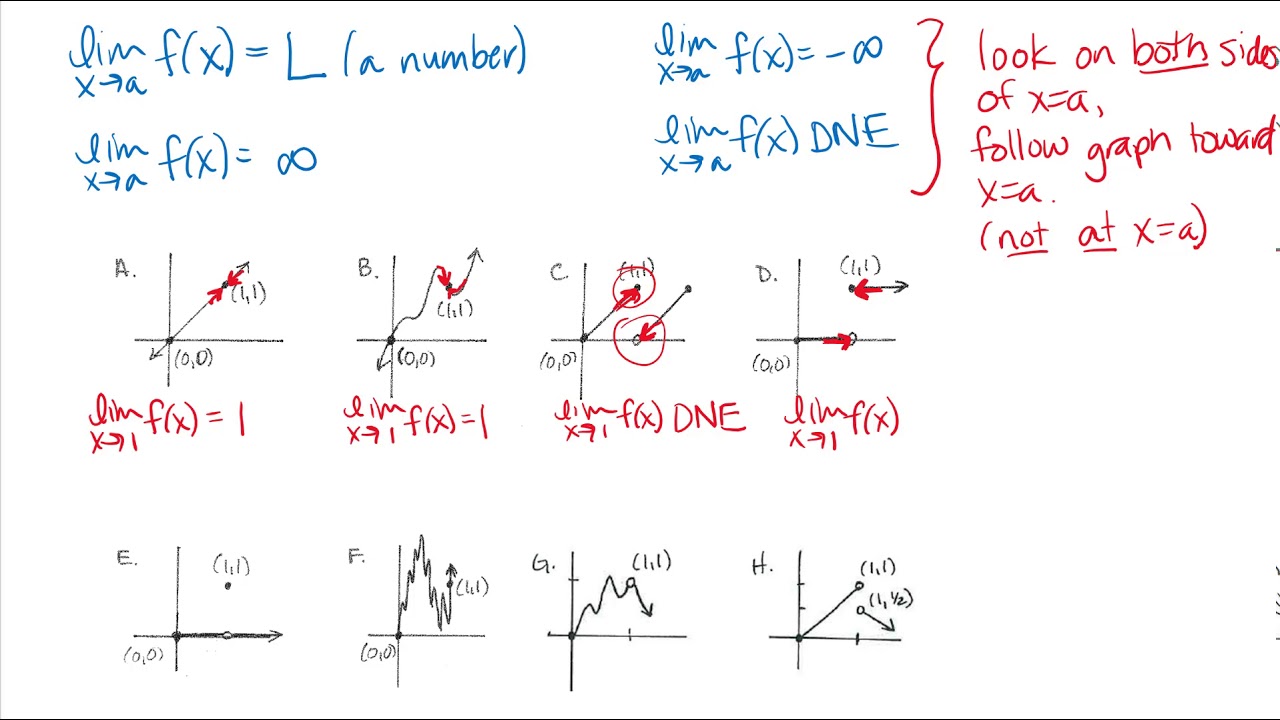 lim x→a f(x) = L (a number)
lim x→a f(x) = ∞
lim x→a f(x) = -∞
lim x→a f(x) DNE
look on both sides
of x=a,
follow graph toward
x=a.
(not at x=a)
A.
(1,1)
(0,0)
lim x→1 f(x) = 1
B.
(1,1)
(0,0)
lim x→1 f(x) = 1
C.
(1,1)
(0,0)
lim x→1 f(x) DNE
D.
(1,1)
(0,0)
lim x→1 f(x)
E.
(1,1)
(0,0)
F.
(1,1)
(0,0)
G.
(1,1)
H.
(1,1)
(1,1/2)